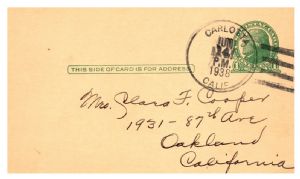 CARLOTTA
JUN
P.M.
1938
CALIF.
THIS SIDE OF CARD IS FOR ADDRESS
Mrs. F. Cooper
1931-87th Ave
Oakland
California